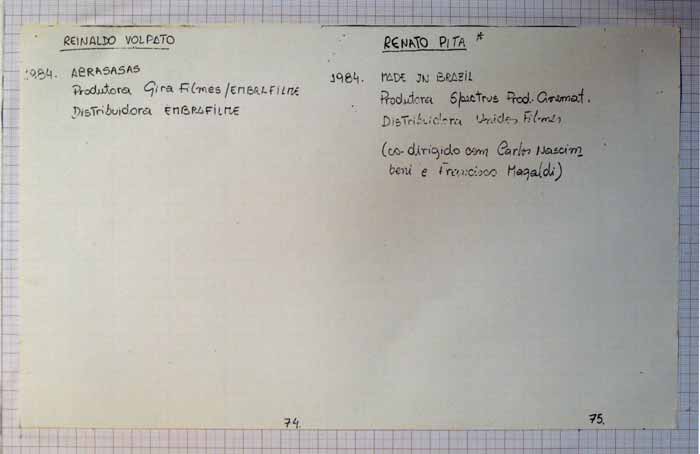 REINALDO VOLPATO
1984. ABRASASAS
Produtora Gira Filmes/EMBRAFILME
Distribuidora EMBRAFILME
74
RENATO PITA *
1984. MADE IN BRAZIL
Produtora Spectrus Prod. Cinemat.
Distribuidora Unidos Filmes
(co-dirigido com Carlos Nascim
beni e Francisco Magaldi)
75.